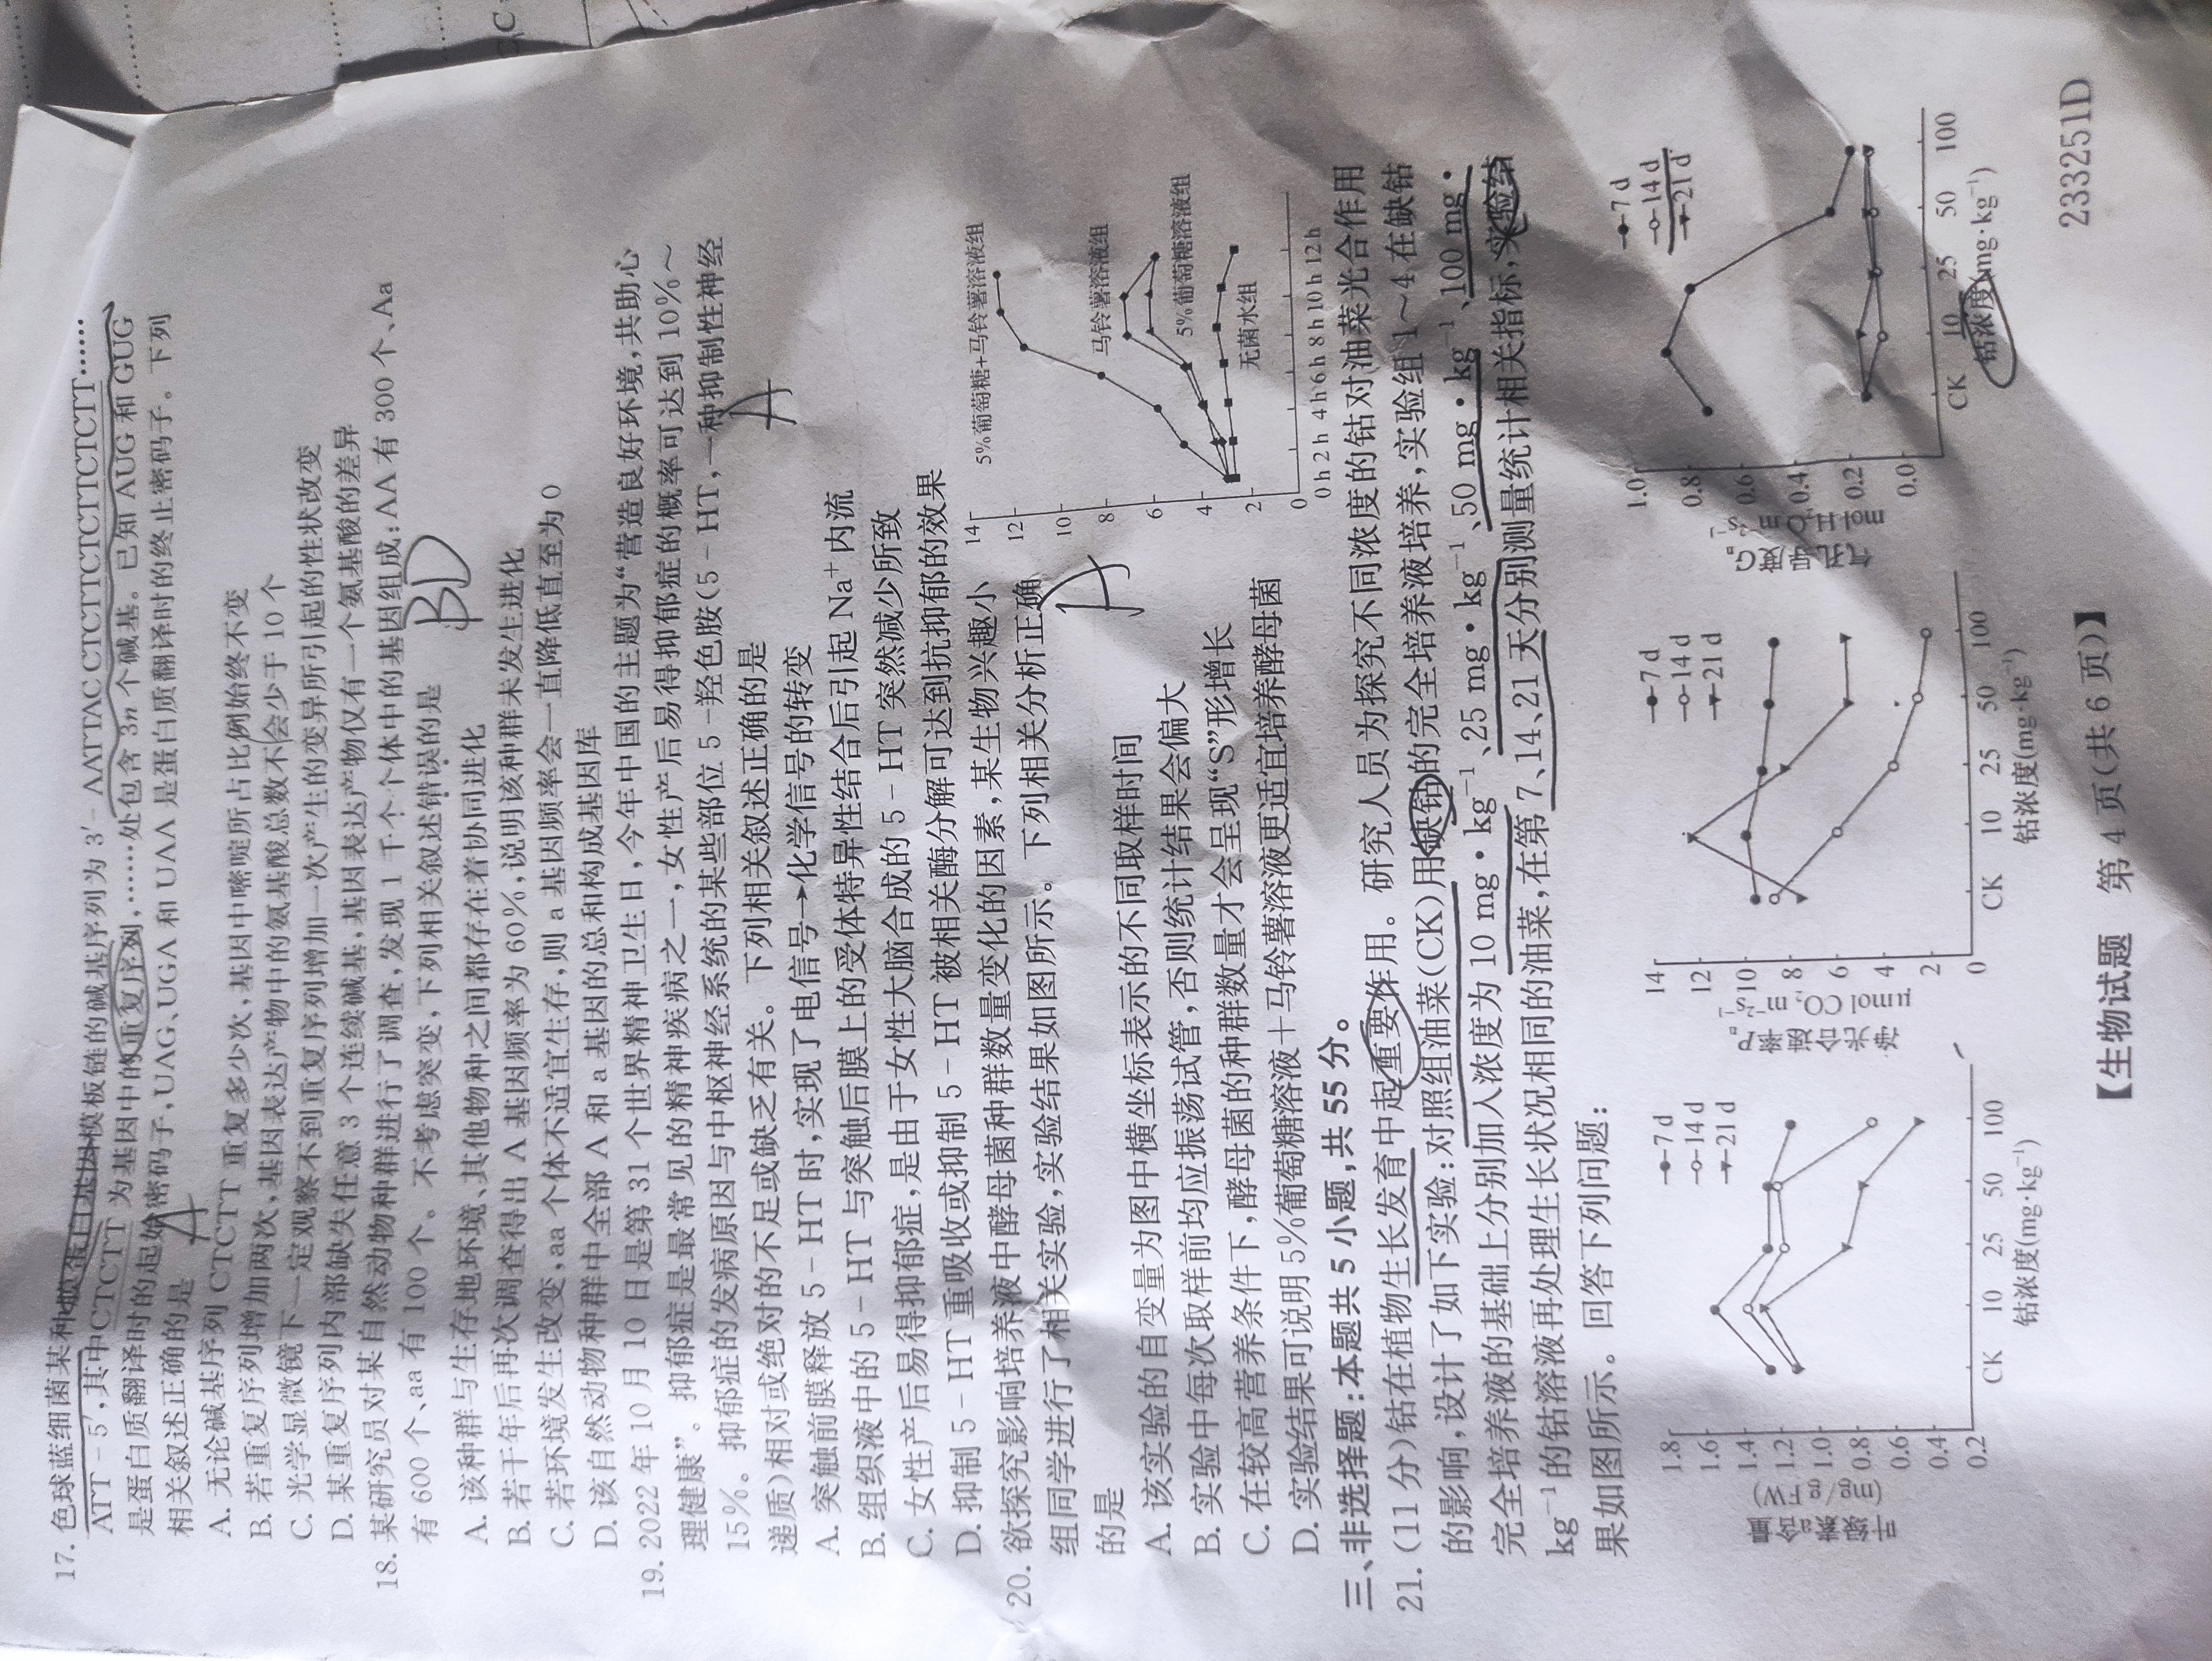 17. 色球蓝细菌某种膜蛋白基因模板链的碱基序列为 3′- AATTAC CTCTTCTCTTCTCTT……
ATT - 5′,其中CTCTT 为基因中的重复序列,……处包含 3n 个碱基。已知 AUG 和 GUG
是蛋白质翻译时的起始密码子,UAG、UGA 和 UAA 是蛋白质翻译时的终止密码子。下列
相关叙述正确的是
A
A. 无论碱基序列 CTCTT 重复多少次,基因中嘧啶所占比例始终不变
B. 若重复序列增加两次,基因表达产物中的氨基酸总数不会少于 10 个
C. 光学显微镜下一定观察不到重复序列增加一次产生的变异所引起的性状改变
D. 某重复序列内部缺失任意 3 个连续碱基,基因表达产物仅有一个氨基酸的差异
18. 某研究员对某自然动物种群进行了调查,发现 1 千个个体中的基因组成:AA 有 300 个、Aa
有 600 个、aa 有 100 个。不考虑突变,下列相关叙述错误的是
BD
A. 该种群与生存地环境、其他物种之间都存在着协同进化
B. 若干年后再次调查得出 A 基因频率为 60%,说明该种群未发生进化
C. 若环境发生改变,aa 个体不适宜生存,则 a 基因频率会一直降低直至为 0
D. 该自然动物种群中全部 A 和 a 基因的总和构成基因库
19. 2022 年 10 月 10 日是第 31 个世界精神卫生日,今年中国的主题为“营造良好环境,共助心
理健康”。抑郁症是最常见的精神疾病之一,女性产后易得抑郁症的概率可达到 10%～
15%。抑郁症的发病原因与中枢神经系统的某些部位 5 -羟色胺(5 - HT,一种抑制性神经
递质)相对或绝对的不足或缺乏有关。下列相关叙述正确的是
A
A. 突触前膜释放 5 - HT 时,实现了电信号→化学信号的转变
B. 组织液中的 5 - HT 与突触后膜上的受体特异性结合后引起 Na⁺ 内流
C. 女性产后易得抑郁症,是由于女性大脑合成的 5 - HT 突然减少所致
D. 抑制 5 - HT 重吸收或抑制 5 - HT 被相关酶分解可达到抗抑郁的效果
20. 欲探究影响培养液中酵母菌种群数量变化的因素,某生物兴趣小
组同学进行了相关实验,实验结果如图所示。下列相关分析正确
的是
A
A. 该实验的自变量为图中横坐标表示的不同取样时间
B. 实验中每次取样前均应振荡试管,否则统计结果会偏大
C. 在较高营养条件下,酵母菌的种群数量才会呈现“S”形增长
D. 实验结果可说明 5%葡萄糖溶液＋马铃薯溶液更适宜培养酵母菌
14
12
10
8
6
4
2
0
5%葡萄糖+马铃薯溶液组
马铃薯溶液组
5%葡萄糖溶液组
无菌水组
0 h 2 h 4 h 6 h 8 h 10 h 12 h
三、非选择题:本题共 5 小题,共 55 分。
21. (11 分)钴在植物生长发育中起重要作用。研究人员为探究不同浓度的钴对油菜光合作用
的影响,设计了如下实验:对照组油菜(CK)用缺钴的完全培养液培养,实验组 1～4 在缺钴
完全培养液的基础上分别加入浓度为 10 mg · kg⁻¹、25 mg · kg⁻¹、50 mg · kg⁻¹、100 mg ·
kg⁻¹ 的钴溶液再处理生长状况相同的油菜,在第 7、14、21 天分别测量统计相关指标,实验结
果如图所示。回答下列问题:
叶绿素a含量
(mg/gFW)
1.8
1.6
1.4
1.2
1.0
0.8
0.6
0.4
0.2
7 d
14 d
21 d
CK 10 25 50 100
钴浓度(mg·kg⁻¹)
净光合速率Pn
μmol CO₂ m⁻²s⁻¹
14
12
10
8
6
4
2
0
7 d
14 d
21 d
CK 10 25 50 100
钴浓度(mg·kg⁻¹)
气孔导度Gs
mol H₂O m⁻²s⁻¹
1.0
0.8
0.6
0.4
0.2
0.0
7 d
14 d
21 d
CK 10 25 50 100
钴浓度(mg·kg⁻¹)
【生物试题 第 4 页(共 6 页)】
233251D